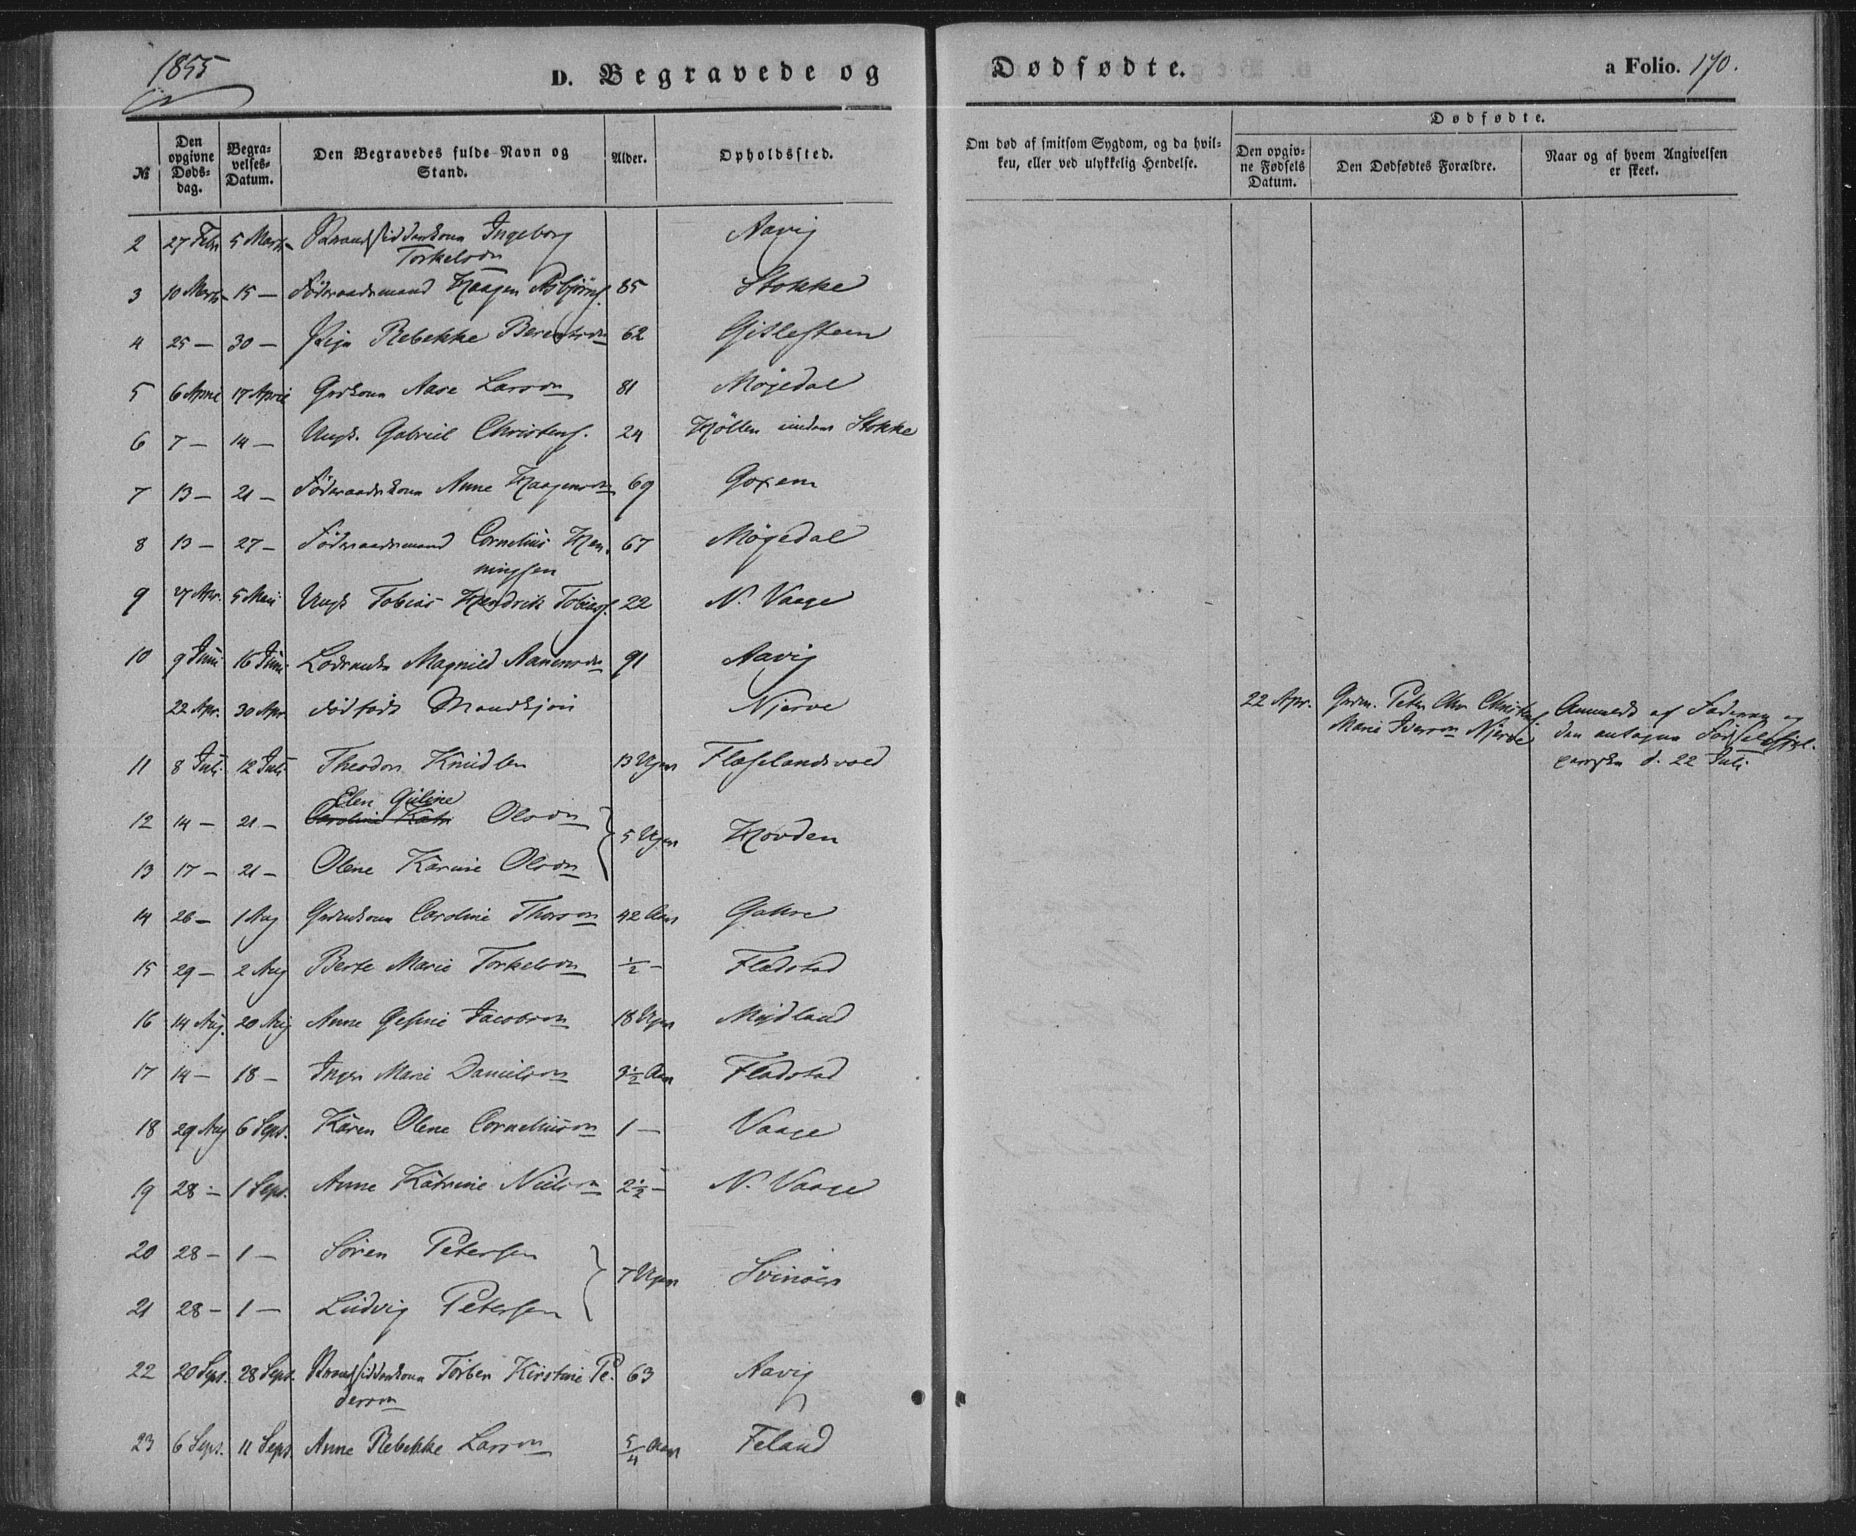 1855
D. Begravede og
Dødfødte.
a Folio. 170.
№
Den opgivne Døds-dag.
Begra-velses-Datum.
Den Begravedes fulde Navn og Stand.
Alder.
Opholdssted.
Om død af smitsom Sygdom, og da hvil-
ken, eller ved ulykkelig Hendelse.
Dødfødte.
Den opgiv-ne Fødsels Datum.
Den Dødfødtes Forældre.
Naar og af hvem Angivelsen
er skeet.
2 27 Febr 5 Marts Ingeborg Aavig
Torkelsdn
3 10 Marts 15 — Föderaadsmand Haagen Asbjörns. 85 Stokke
4 25 — 30 — Pige Rebekke Berentsdn 62 Gislefteen
5 6 April 17 April Grdkona Aase Larsdn 81 Møgedal
6 7 — 14 — Ungk. Gabriel Christens. 24 Høllen under Stokke
7 13 — 21 — Föderaadskona Anne Haagensdn 69 Goxem
8 13 — 27 — Föderaadsmand Cornelius Hen- 67 Møgedal
ningsen
9 27 Apr. 5 Mai Ungk Tobias Hendrik Tobias. 22 N. Vaage
10 9 Juni 16 Juni Magnild Aanensdn 91 Aavig
22 Apr. 30 Apr dödfödt Mandkjön Njerve 22 Apr. Grdm. Peter Chr. Christens. Anmeldt af Faderen og
Marie Iversdn Njerve
d. 22 Juli
11 8 Juli 12 Juli Theodor Knudsen 13 Uger Flaselandsvold
Elen Guline
12 14 — 21 — Caroline Katr Olsdn 5 Uger Hovden
13 17 — 21 — Olene Karine Olsdn
14 26 — 1 Aug Grdmkona Caroline Thorsdn 42 Aar Gahre
15 29 — 2 Aug Berte Marie Torkelsdn ½ — Fladstad
16 14 Aug. 20 Aug Anne Gesine Jacobsdn 18 Uger Møjdland
17 14 — 18 — Inger Marie Danielsdn 3½ Aar Fladstad
18 29 Aug 6 Sept. Karen Olene Corneliusdn 1 — Vaage
19 28 — 1 Sept. Anne Katrine Nielsdn 2½ — N. Vaage
20 28 — 1 — Sören Petersen 7 Uger Svinöer
21 28 — 1 — Ludvig Petersen
22 20 Sept. 28 Sept. Torber Kirstine Pe- 63 Aavig
dersdn
23 6 Sept. 11 Sept Anne Rebekke Larsdn 5/4 Aar Feland